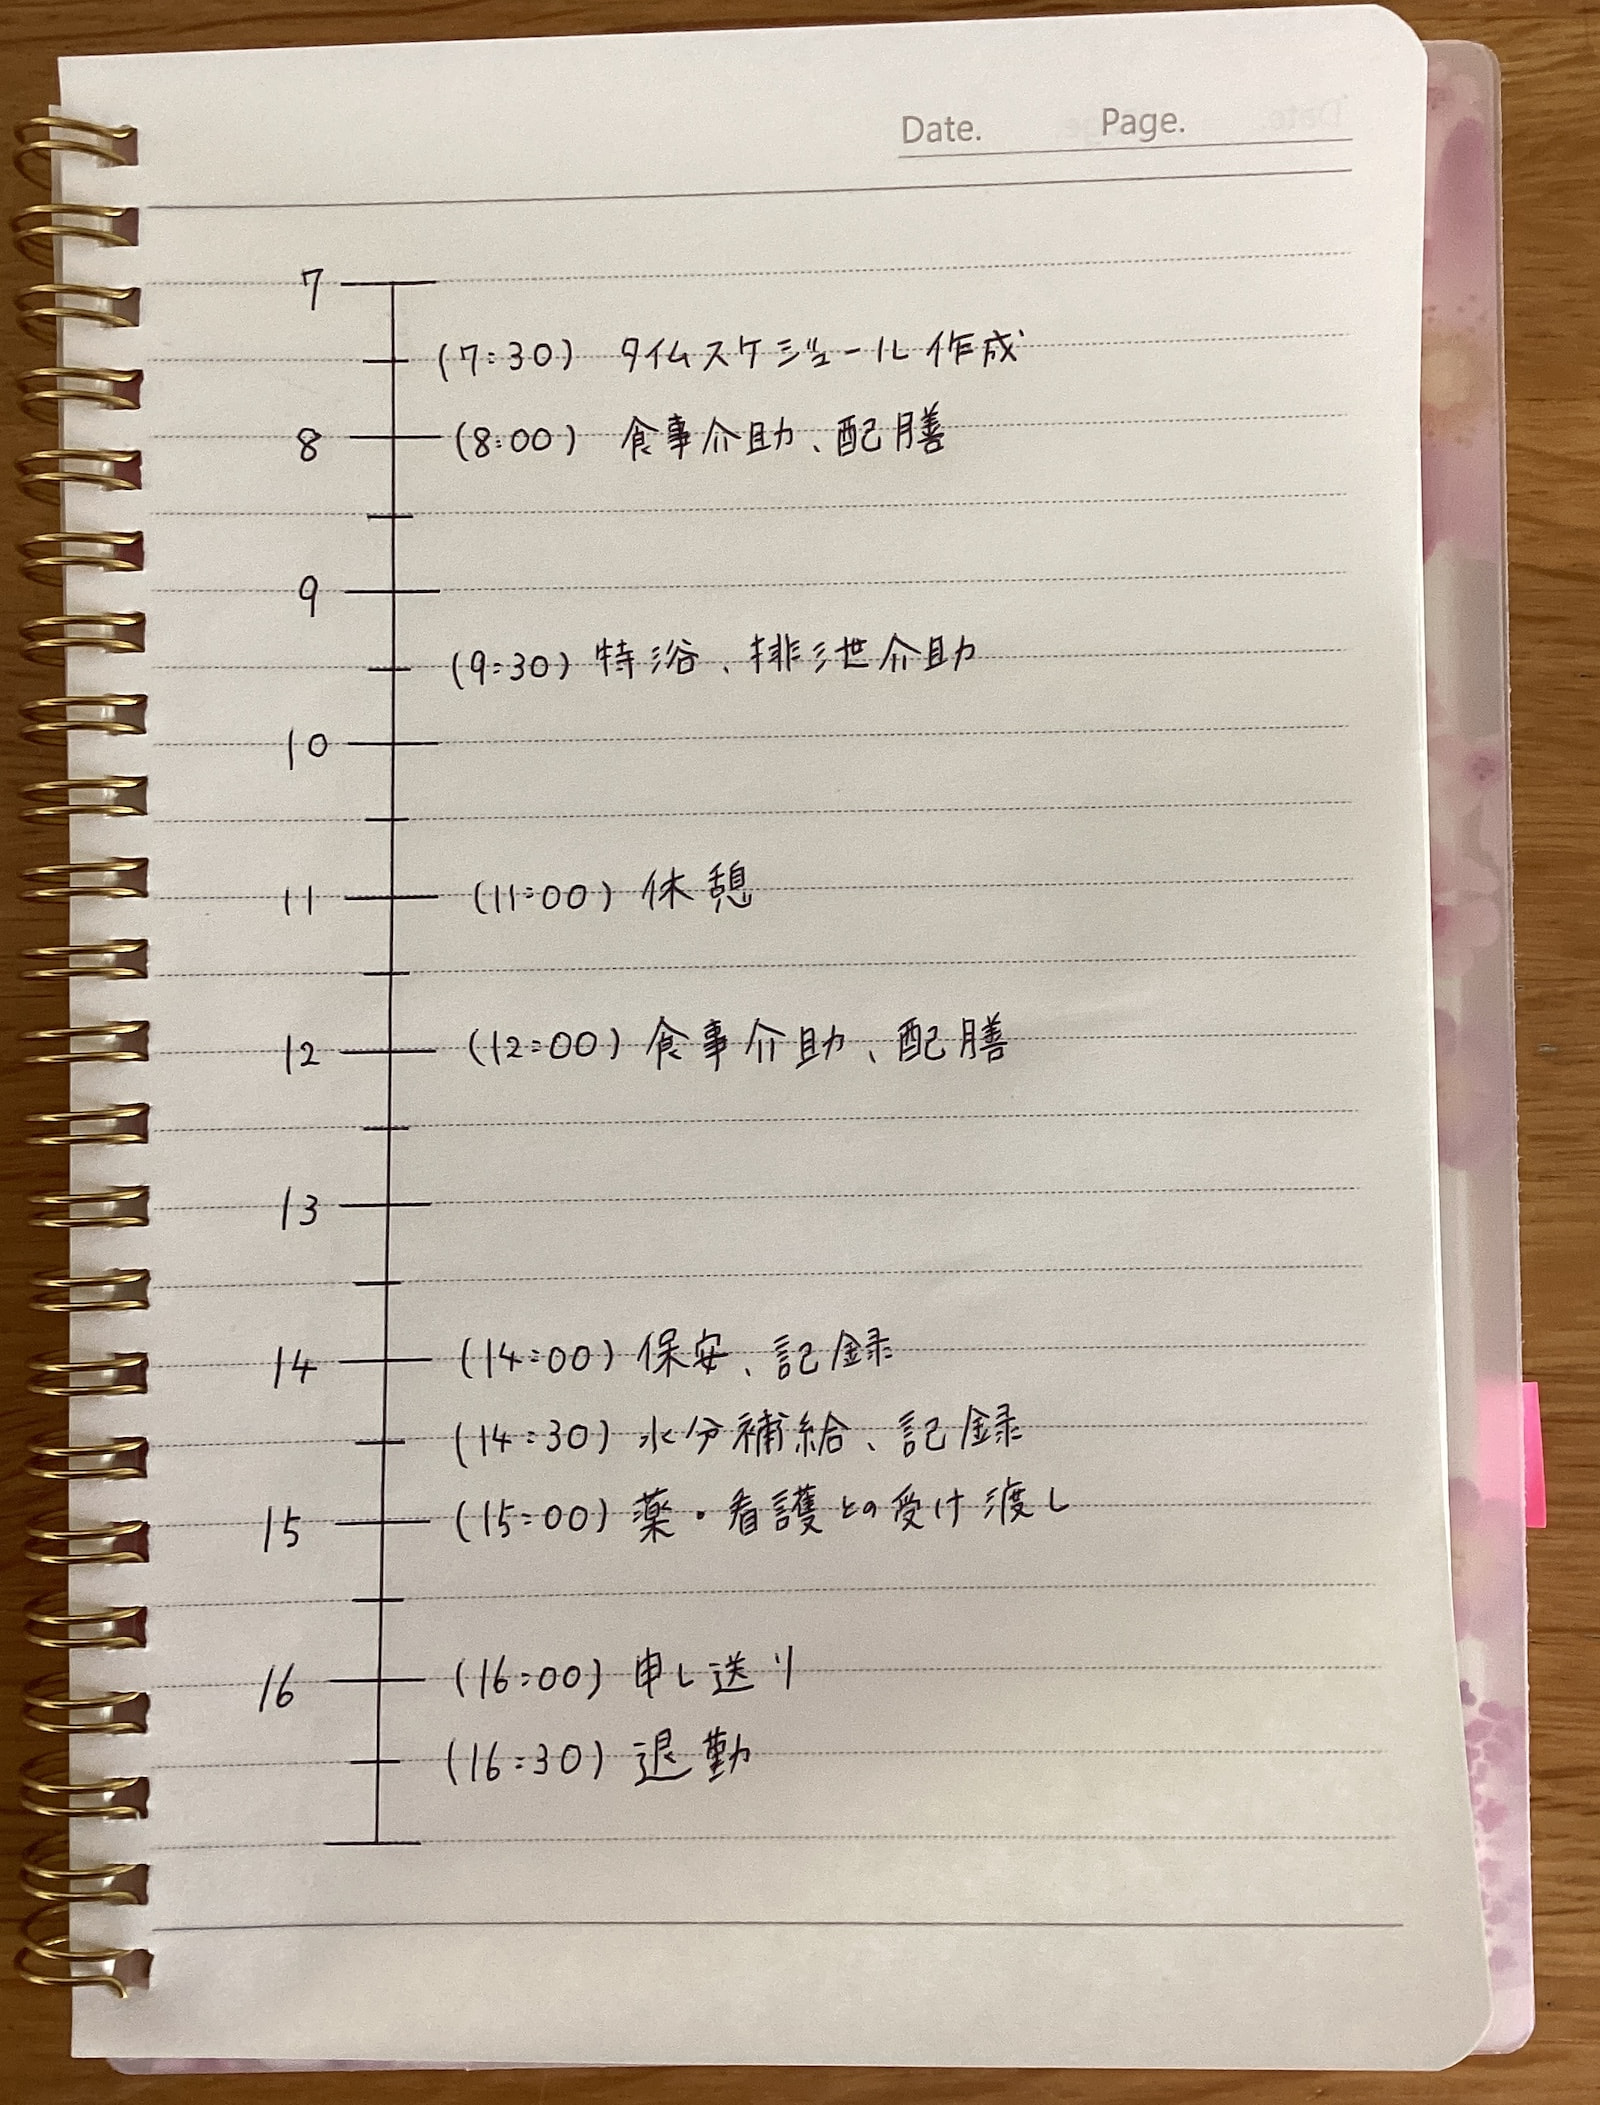 Date. Page.
7
(7:30) タイムスケジュール作成
8 (8:00) 食事介助、配膳
9
(9:30) 特浴、排泄介助
10
11 (11:00) 休憩
12 (12:00) 食事介助、配膳
13
14 (14:00) 保安、記録
(14:30) 水分補給、記録
15 (15:00) 薬・看護との受け渡し
16 (16:00) 申し送り
(16:30) 退勤